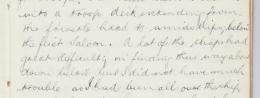 into a troop deck extending from
the forward head to amidships, below
the first saloon. A lot of the chaps had
great difficulty in finding their way about
down below, but I did not have much
trouble as I had been all over the ship